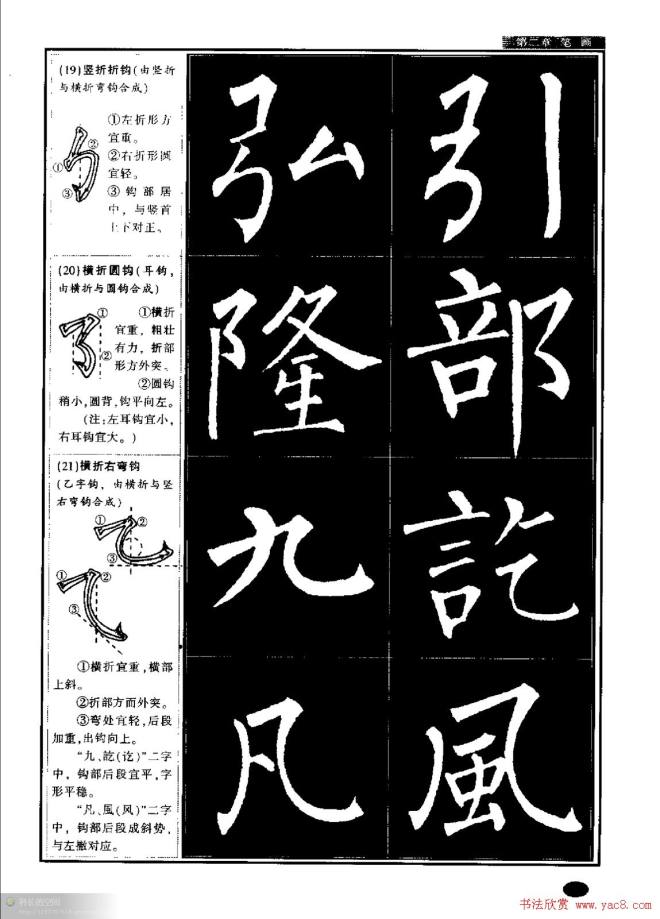 第二章 笔 画
(19)竖折折钩(由竖折
与横折弯钩合成)
①左折形方
宜重。
②右折形圆
宜轻。
③钩部居
中，与竖首
上下对正。
①
②
③
(20)横折圆钩(耳钩，
由横折与圆钩合成)
①横折
宜重，粗壮
有力，折部
形方外突。
②圆钩
稍小，圆背，钩平向左。
(注：左耳钩宜小，
右耳钩宜大。)
①
②
(21)横折右弯钩
(乙字钩，由横折与竖
右弯钩合成)
① ②
③
① ②
③
①横折宜重，横部
上斜。
②折部方而外突。
③弯处宜轻，后段
加重，出钩向上。
“九、訖(讫)”二字
中，钩部后段宜平，字
形平稳。
“凡、風(风)”二字
中，钩部后段成斜势，
与左撇对应。
弘 引
隆 部
九 訖
凡 風
书法欣赏 www.yac8.com